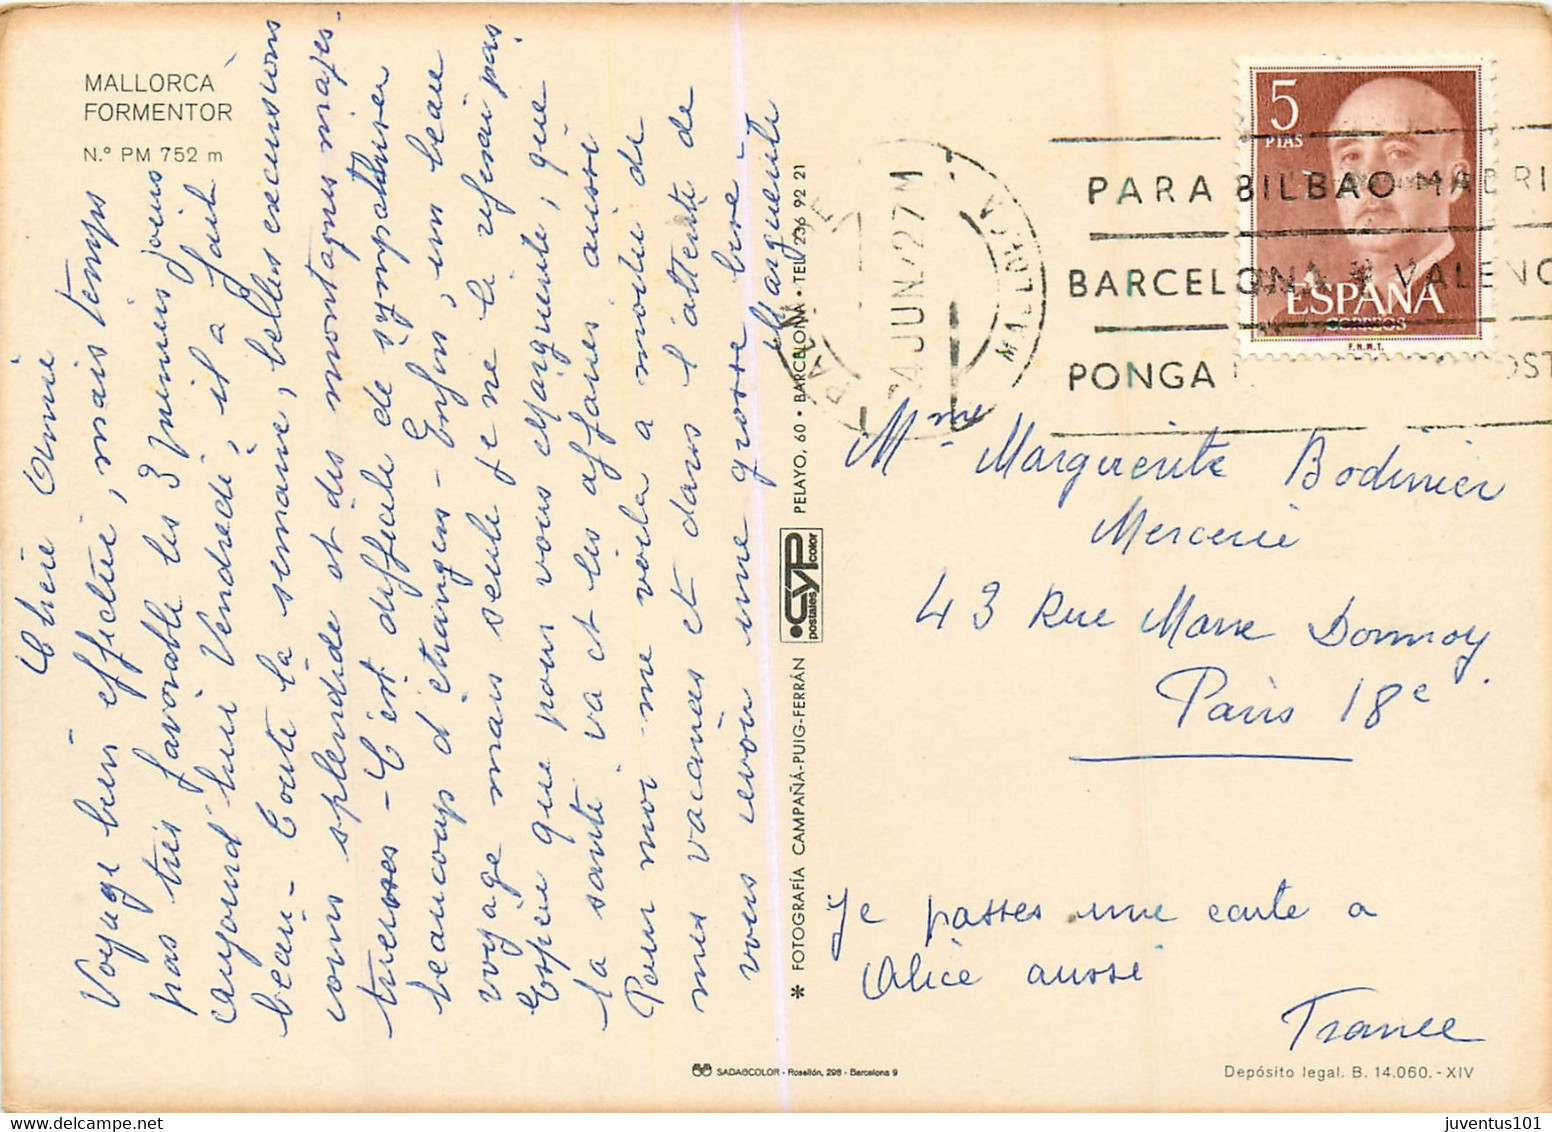 MALLORCA
FORMENTOR
N.º PM 752 m
Chère Amie
Voyage bien effectué, mais temps
pas très favorable les 3 premiers jours
aujourd'hui Vendredi, il a fait
beau - Toute la semaine, belles excursions
coins splendide et des montagnes majes-
tueuses - C'est difficile de sympathiser
beaucoup d'étrangers - Enfin, un beau
voyage mais seule je ne le referai pas
Espère que pour vous Marguerite, que
la santé va et les affaires aussi
Pour moi me voila a moitié de
mes vacances et dans l'attente de
vous revoir une grosse bise -
Marguerite
✱ FOTOGRAFÍA CAMPAÑÁ-PUIG-FERRÁN
CYP
postales color
PELAYO, 60 • BARCELONA • TEL. 236 92 21
SADAGCOLOR - Rosellón, 298 - Barcelona 9
PALMA DE
MALLORCA
24 JUN. 27 M
PARA BILBAO MADRI
BARCELONA Y VALENC
PONGA
OST
5
PTAS
ESPAÑA
CORREOS
F.N.M.T.
Mme Marguerite Bodinier
Mercerie
43 Rue Marx Dormoy
Paris 18e
Je passes une carte a
Alice aussi
France
Depósito legal. B. 14.060.-XIV
juventus101